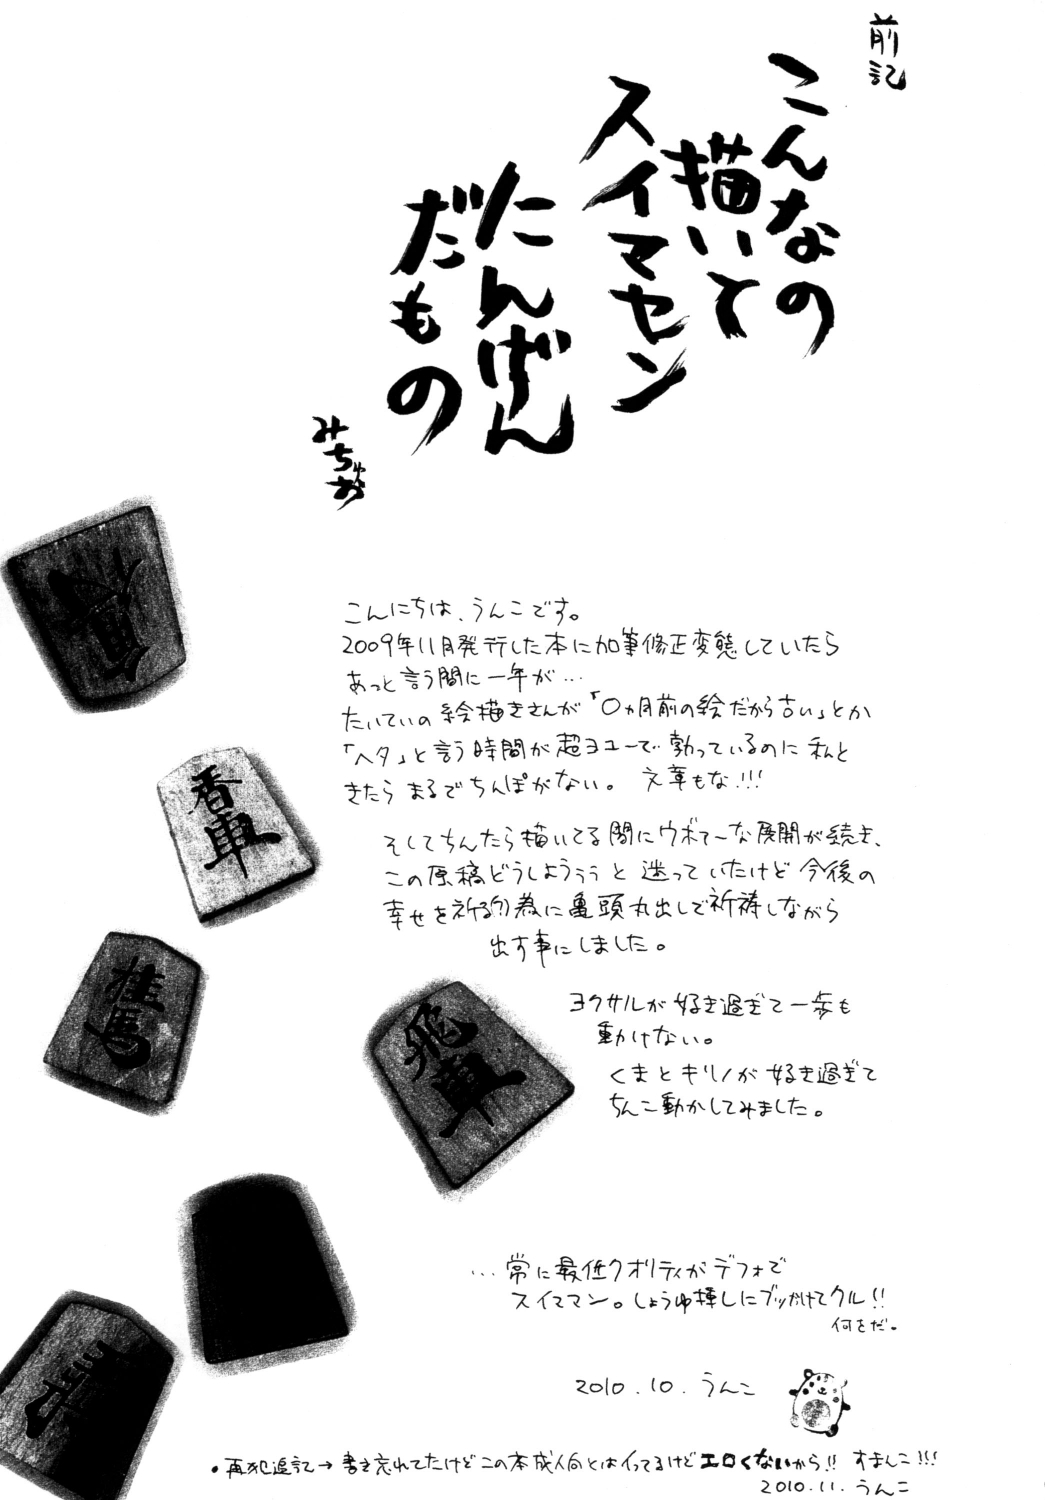 前記
こんなの
描いて
スイマセン
たんげん
だもの
みちゅお
香車
桂馬
飛車
こんにちは、うんこです。
2009年11月発行した本に加筆修正変態していたら
あっと言う間に一年が…
たいていの絵描きさんが「〇ヵ月前の絵だから古い」とか
「ヘタ」と言う時間が超ヨユーで勃っているのに私と
きたらまるでちんぽがない。 文章もな!!!
そしてちんたら描いてる間にウボァーな展開が続き、
この原稿どうしようぅぅと迷っていたけど今後の
幸せを祈る(?)為に亀頭丸出しで祈祷しながら
出す事にしました。
ヨクサルが好き過ぎて一歩も
動けない。
くまとキリノが好き過ぎて
ちんこ動かしてみました。
…常に最低クオリティがデフォで
スイママン。しょうゆ挿しにブッかけてクル!!
何をだ。
2010.10.うんこ
・再犯追記→書き忘れてたけどこの本成人向とはイってるけどエロくないから!! すまんこ!!!
2010.11.うんこ